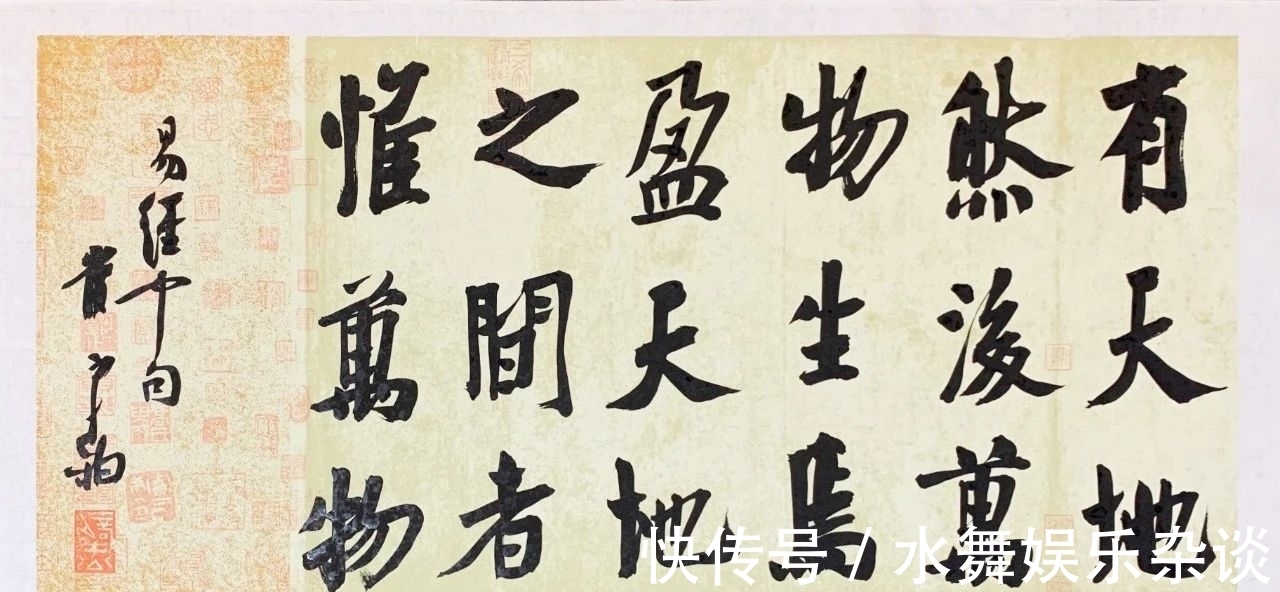 有天地
然後萬
物生焉
盈天地
之間者
惟萬物
易經中句
快传号 / 水舞娱乐杂谈